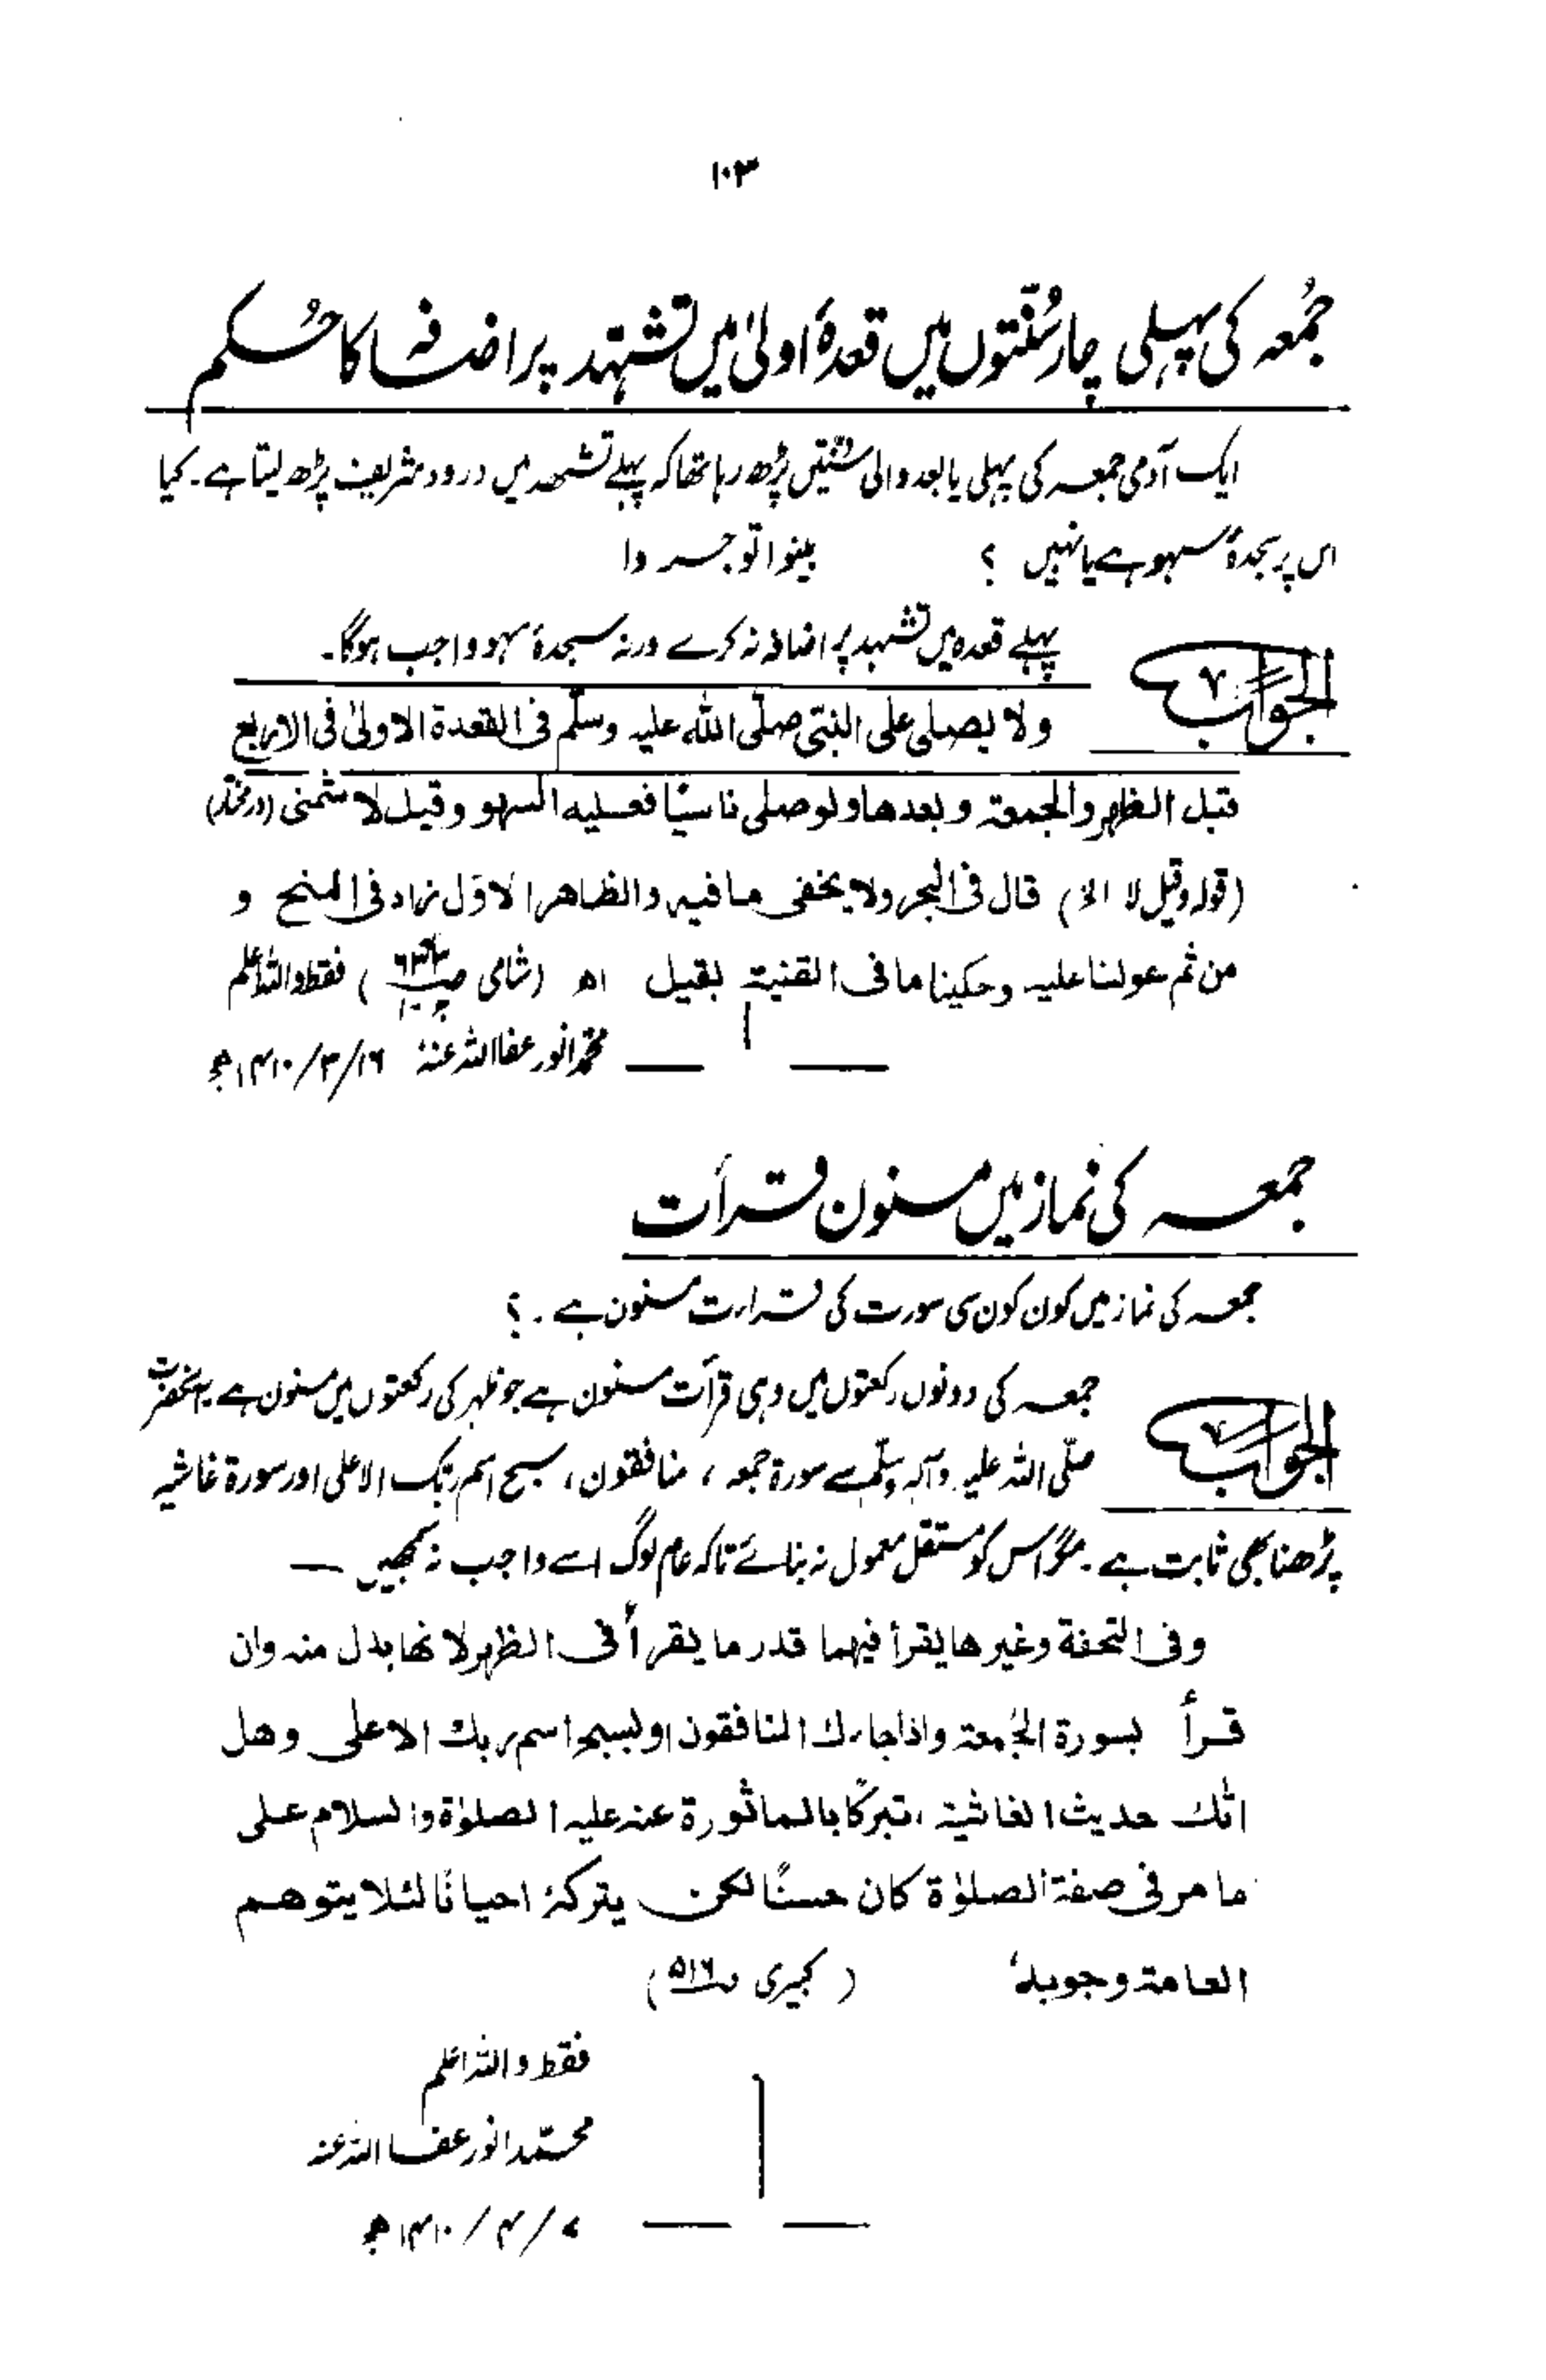 ۱۰۳
جُمعہ کی پہلی چار سُنّتوں میں قعدۂ اولیٰ میں تشہّد پر اضافہ کا حُکم
ایک آدمی جمعہ کی پہلی یا بعد والی سنتیں پڑھ رہا تھا کہ پہلے تشہد میں درود شریف پڑھ لیتا ہے۔ کیا
اس پر سجدۂ سہو ہے یا نہیں ؟ بینوا توجروا
الجواب پہلے قعدہ میں تشہد پر اضافہ نہ کرے ورنہ سجدۂ سہو واجب ہوگا۔
ولا یصلی علی النبی صلّی اللّٰہ علیہ وسلّم فی القعدۃ الاولیٰ فی الاربع
قبل الظہر والجمعۃ وبعدھا ولو صلی ناسیًا فعلیہ السہو وقیل لا شمنی (درمختار)
(قولہ وقیل لا الخ) قال فی البحر ولا یخفی ما فیہ والظاھر الاوّل زاد فی المنح و
من ثم عولنا علیہ وحکینا ما فی القنیۃ بقیل اھ (شامی ) فقط واللہ اعلم
محمّد انور عفا اللہ عنہٗ ۱۶/۳/۱۴۱۰ھ
جمعہ کی نماز میں مسنون قرأت
جمعہ کی نماز میں کون کون سی سورت کی قراءت مسنون ہے۔؟
الجواب جمعہ کی دونوں رکعتوں میں وہی قرأت مسنون ہے جو ظہر کی رکعتوں میں مسنون ہے۔ آنحضرت
صلّی اللہ علیہ وآلہ وسلّم سے سورۃ جمعہ ، منافقون ، سبح اسم ربک الاعلی اور سورۃ غاشیہ
پڑھنا بھی ثابت ہے۔ مگر اس کو مستقل معمول نہ بنائے تاکہ عام لوگ اسے واجب نہ سمجھیں —
وفی التحفة وغیرھا یقرأ فیہما قدر ما یقرأ فی الظہر لا نھا بدل منہ وان
قرأ بسورۃ الجُمعۃ واذا جاءک المنافقون او بسبح اسم ربک الاعلی وھل
اتٰک حدیث الغاشیۃ ، تبرکًا بالماثورۃ عنہ علیہ الصلوٰۃ والسلام علی
ما مر فی صفۃ الصلوٰۃ کان حسنًا لکن یترکہٗ احیانًا لئلا یتوھم
العامۃ وجوبہٗ (کبیری ص۵۱۶)
فقط واللہ اعلم
محمّد انور عفا اللہ عنہ
۷/۴/۱۴۱۰ھ